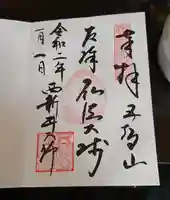 奉拝 五智山
厄除 弘法大師
令和二年 西新井大師
一月一日